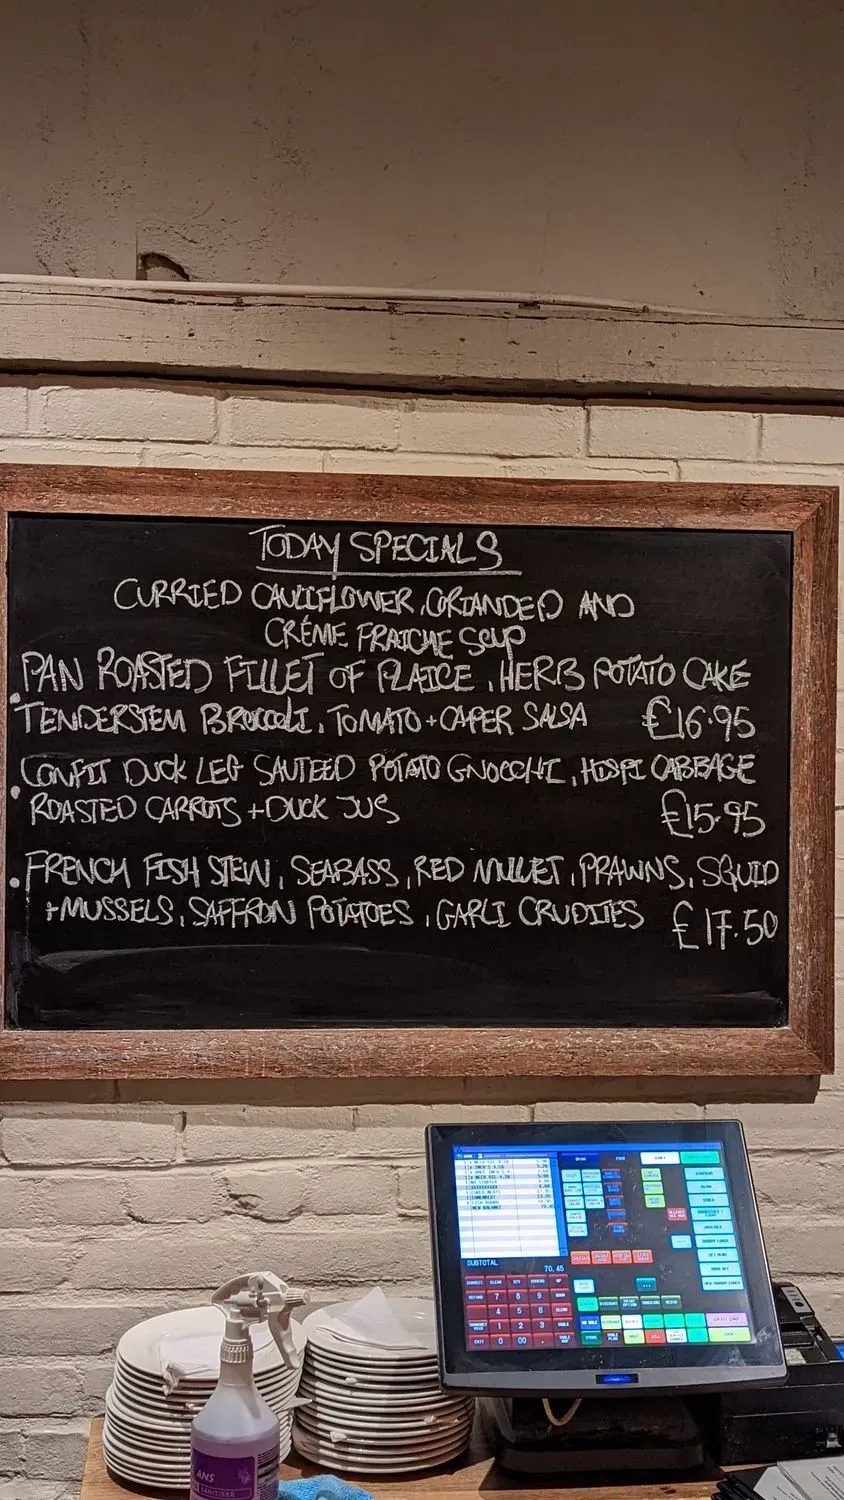 TODAY SPECIALS
CURRIED CAULIFLOWER, CORIANDED AND
CRÉME FRAICHE SOUP
PAN ROASTED FILLET OF PLAICE, HERB POTATO CAKE
TENDERSTEM BROCCOLI, TOMATO + CAPER SALSA £16.95
CONFIT DUCK LEG SAUTEED POTATO GNOCCHI, HISPI CABBAGE
ROASTED CARROTS + DUCK JUS £15.95
FRENCH FISH STEW, SEABASS, RED MULLET, PRAWNS, SQUID
+ MUSSELS, SAFFRON POTATOES, GARLI CRUDITES £17.50
SUBTOTAL
70.45
7 8 9
4 5 6
1 2 3
0 00 .
ANS
SANITISER